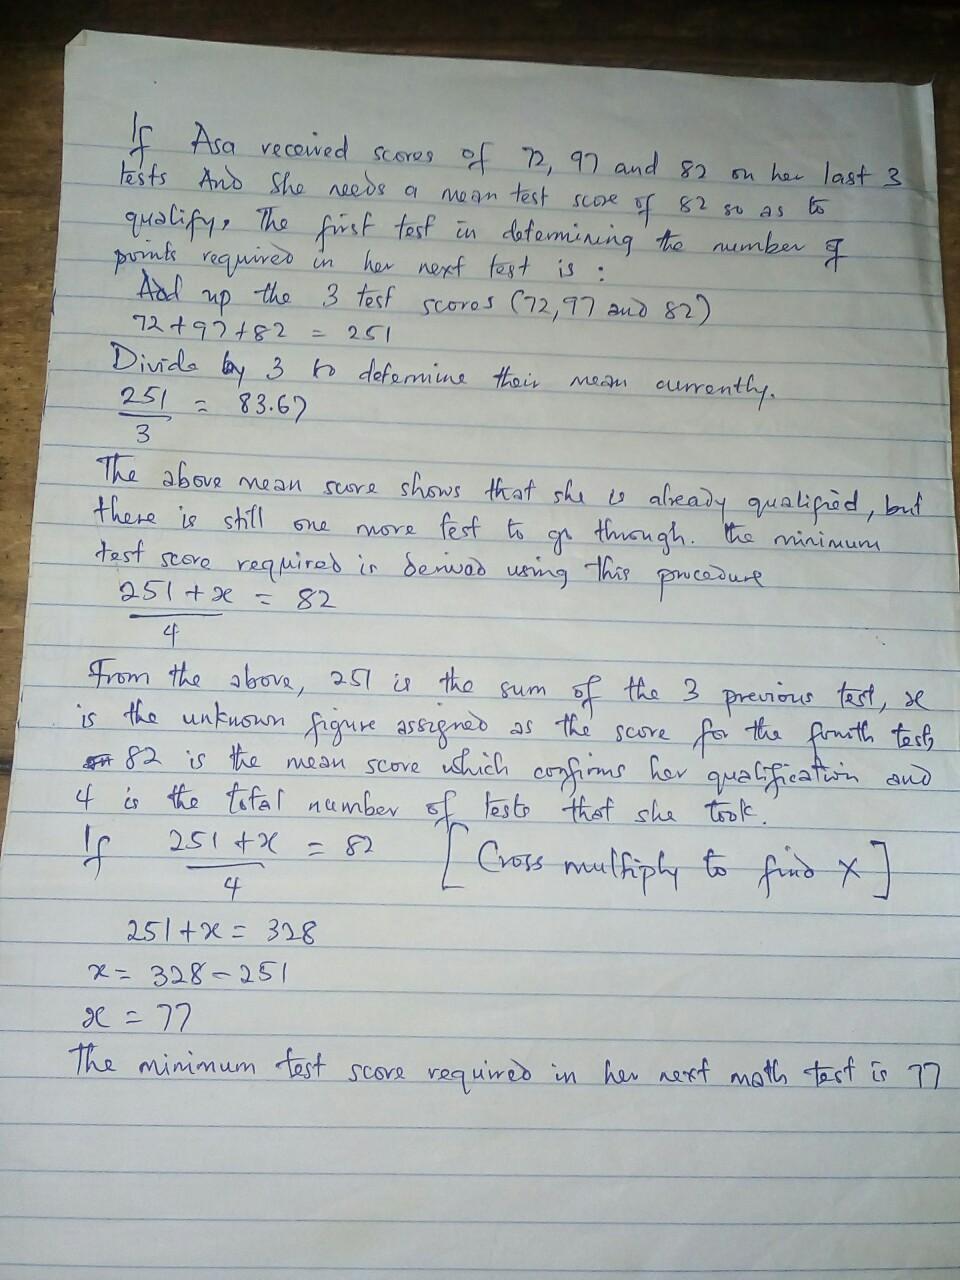 If Asa received scores of 72, 97 and 82 on her last 3
tests And She needs a mean test score of 82 so as to
qualify, The first test in determining the number of
points required in her next test is :
Add up the 3 test scores (72,97 and 82)
72+97+82 = 251
Divide by 3 to determine their mean currently.
251 = 83.67
3
The above mean score shows that she is already qualified, but
there is still one more test to go through. The minimum
test score required is derived using this procedure
251 + x = 82
4
From the above, 251 is the sum of the 3 previous test, x
is the unknown figure assigned as the score for the fourth test,
82 is the mean score which confirms her qualification and
4 is the total number of tests that she took.
If 251 + x = 82 [Cross multiply to find x]
4
251 + x = 328
x = 328 - 251
x = 77
The minimum test score required in her next math test is 77